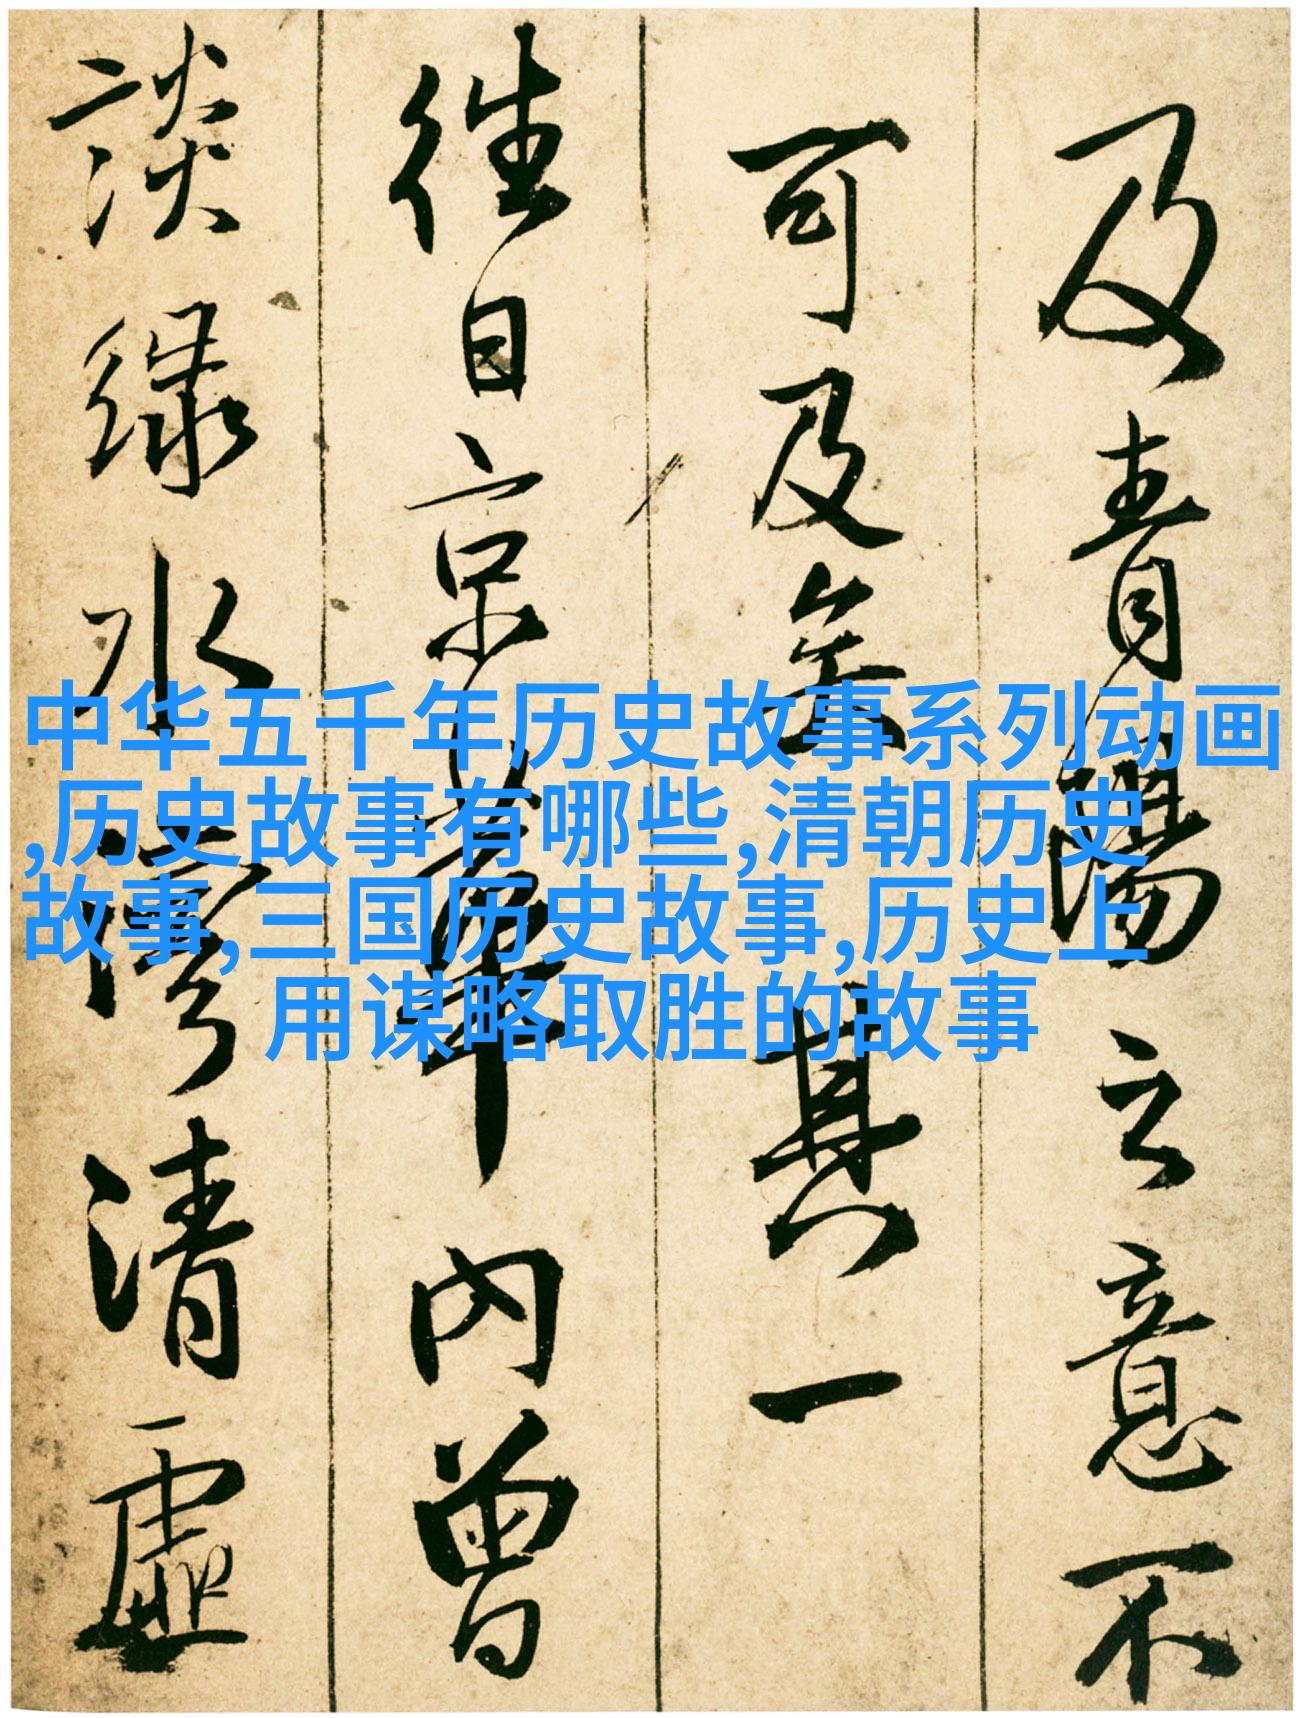 及青陽意不
可及其一
往日京華內曾
談緑水清虛
中华五千年历史故事系列动画
,历史故事有哪些,清朝历史
故事,三国历史故事,历史上
用谋略取胜的故事